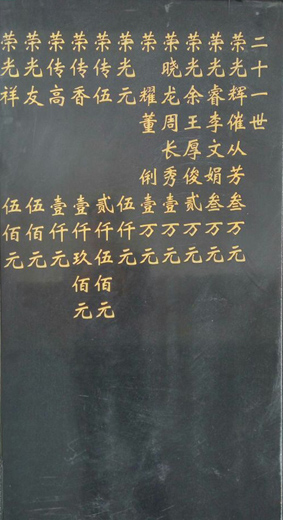 二十一世
荣光辉催从芳叁万元
荣光睿李文娟叁万元
荣光余王厚俊贰万元
荣晓龙周长秀壹万元
荣 耀董 俐壹万元
荣光元 伍仟元
荣传伍 贰仟伍佰元
荣传香 壹仟玖佰元
荣传高 壹仟元
荣光友 伍佰元
荣光祥 伍佰元